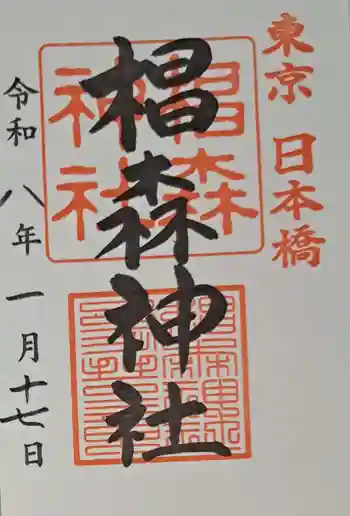 東京 日本橋
椙森神社
椙森
神社
令和 八年 一月 十七日